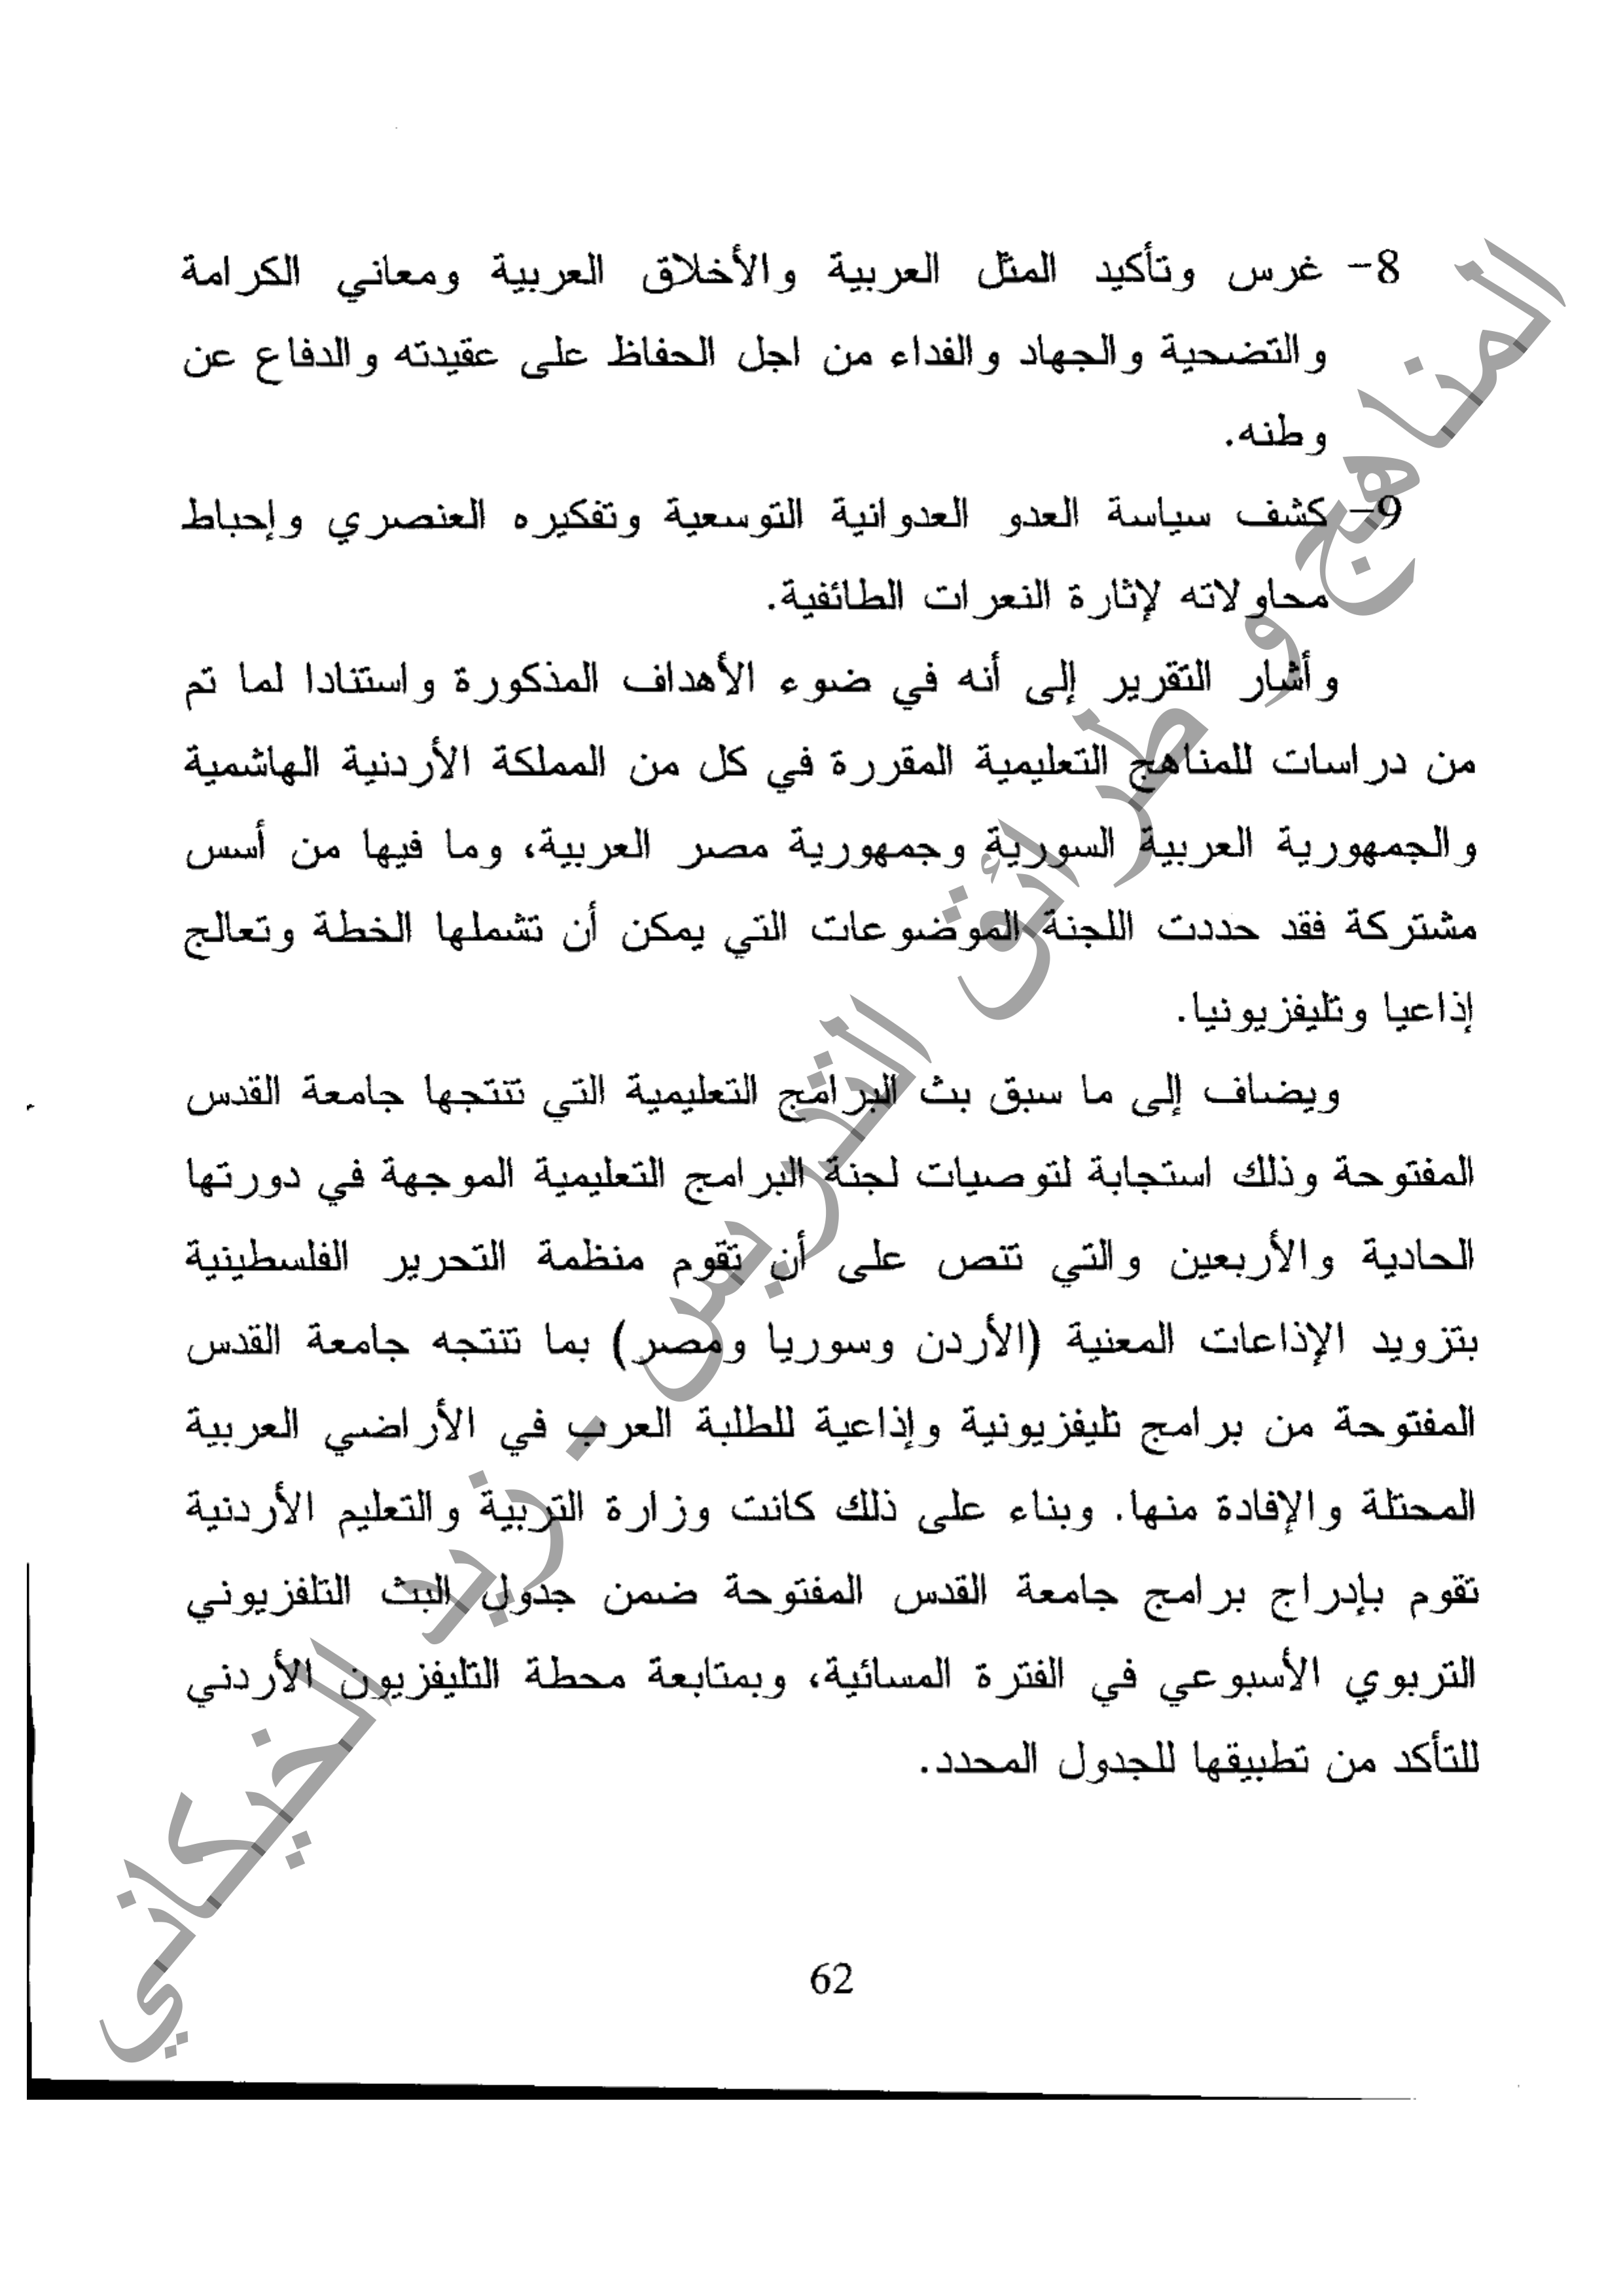 8- غرس وتأكيد المثل العربية والأخلاق العربية ومعاني الكرامة
والتضحية والجهاد والفداء من اجل الحفاظ على عقيدته والدفاع عن
وطنه.
9- كشف سياسة العدو العدوانية التوسعية وتفكيره العنصري وإحباط
محاولاته لإثارة النعرات الطائفية.
وأشار التقرير إلى أنه في ضوء الأهداف المذكورة واستنادا لما تم
من دراسات للمناهج التعليمية المقررة في كل من المملكة الأردنية الهاشمية
والجمهورية العربية السورية وجمهورية مصر العربية، وما فيها من أسس
مشتركة فقد حددت اللجنة الموضوعات التي يمكن أن تشملها الخطة وتعالج
إذاعيا وتليفزيونيا.
ويضاف إلى ما سبق بث البرامج التعليمية التي تنتجها جامعة القدس
المفتوحة وذلك استجابة لتوصيات لجنة البرامج التعليمية الموجهة في دورتها
الحادية والأربعين والتي تنص على أن تقوم منظمة التحرير الفلسطينية
بتزويد الإذاعات المعنية (الأردن وسوريا ومصر) بما تنتجه جامعة القدس
المفتوحة من برامج تليفزيونية وإذاعية للطلبة العرب في الأراضي العربية
المحتلة والإفادة منها. وبناء على ذلك كانت وزارة التربية والتعليم الأردنية
تقوم بإدراج برامج جامعة القدس المفتوحة ضمن جدول البث التلفزيوني
التربوي الأسبوعي في الفترة المسائية، وبمتابعة محطة التليفزيون الأردني
للتأكد من تطبيقها للجدول المحدد.
62
المناهج و طرائق التدريس - زيد الخيكاني